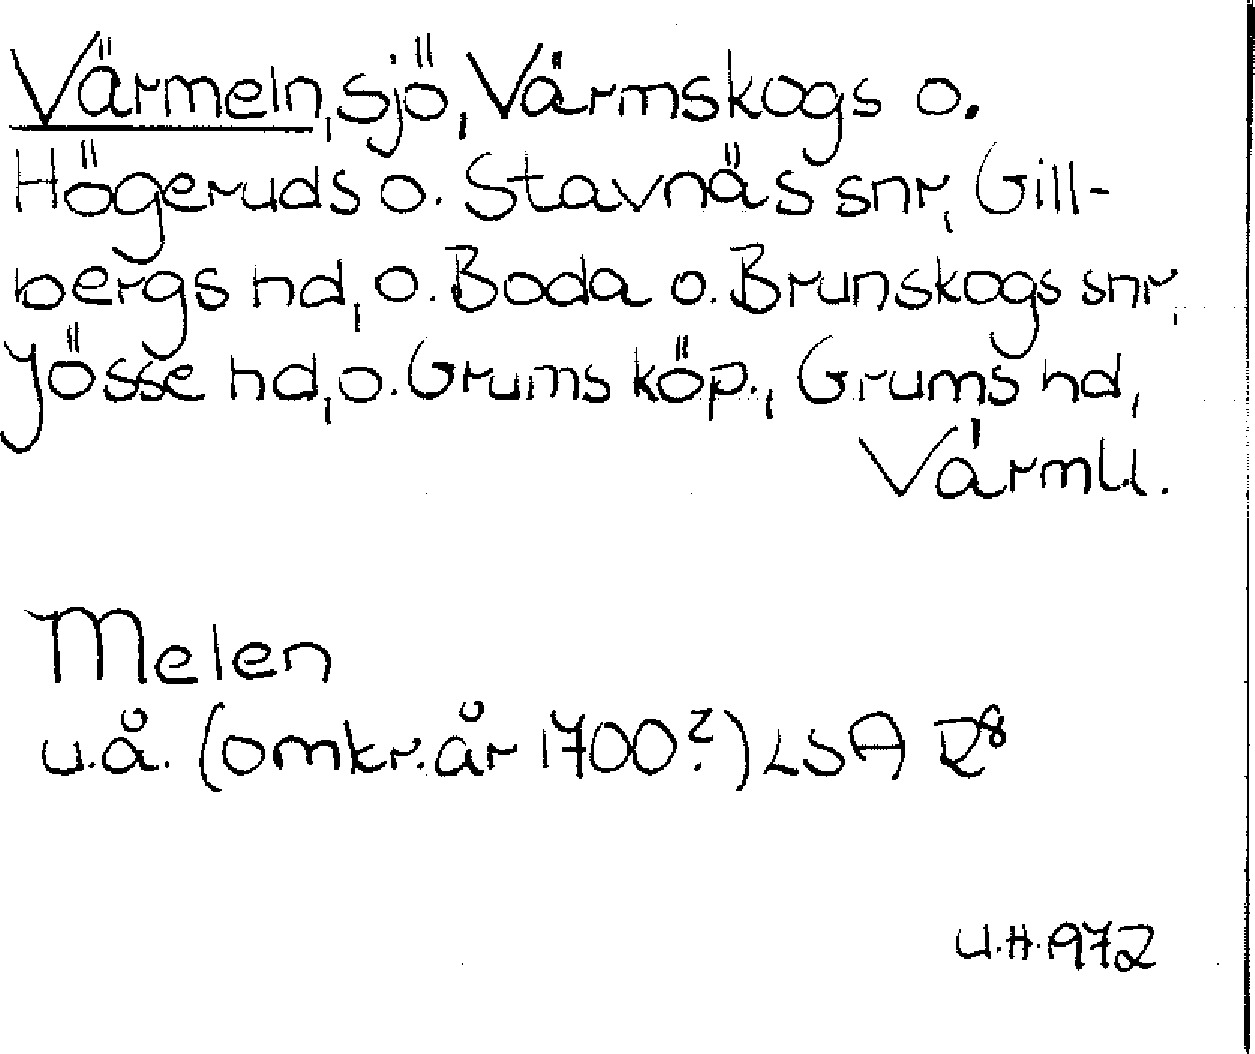 Värmeln, sjö, Värmskogs o.
Högeruds o. Stavnäs snr, Gill-
bergs hd, o. Boda o. Brunskogs snr,
Jösse hd, o. Grums köp., Grums hd,
Värml.
Melen
u.å. (omkr. år 1700?) LSA R8
U.H. 1972